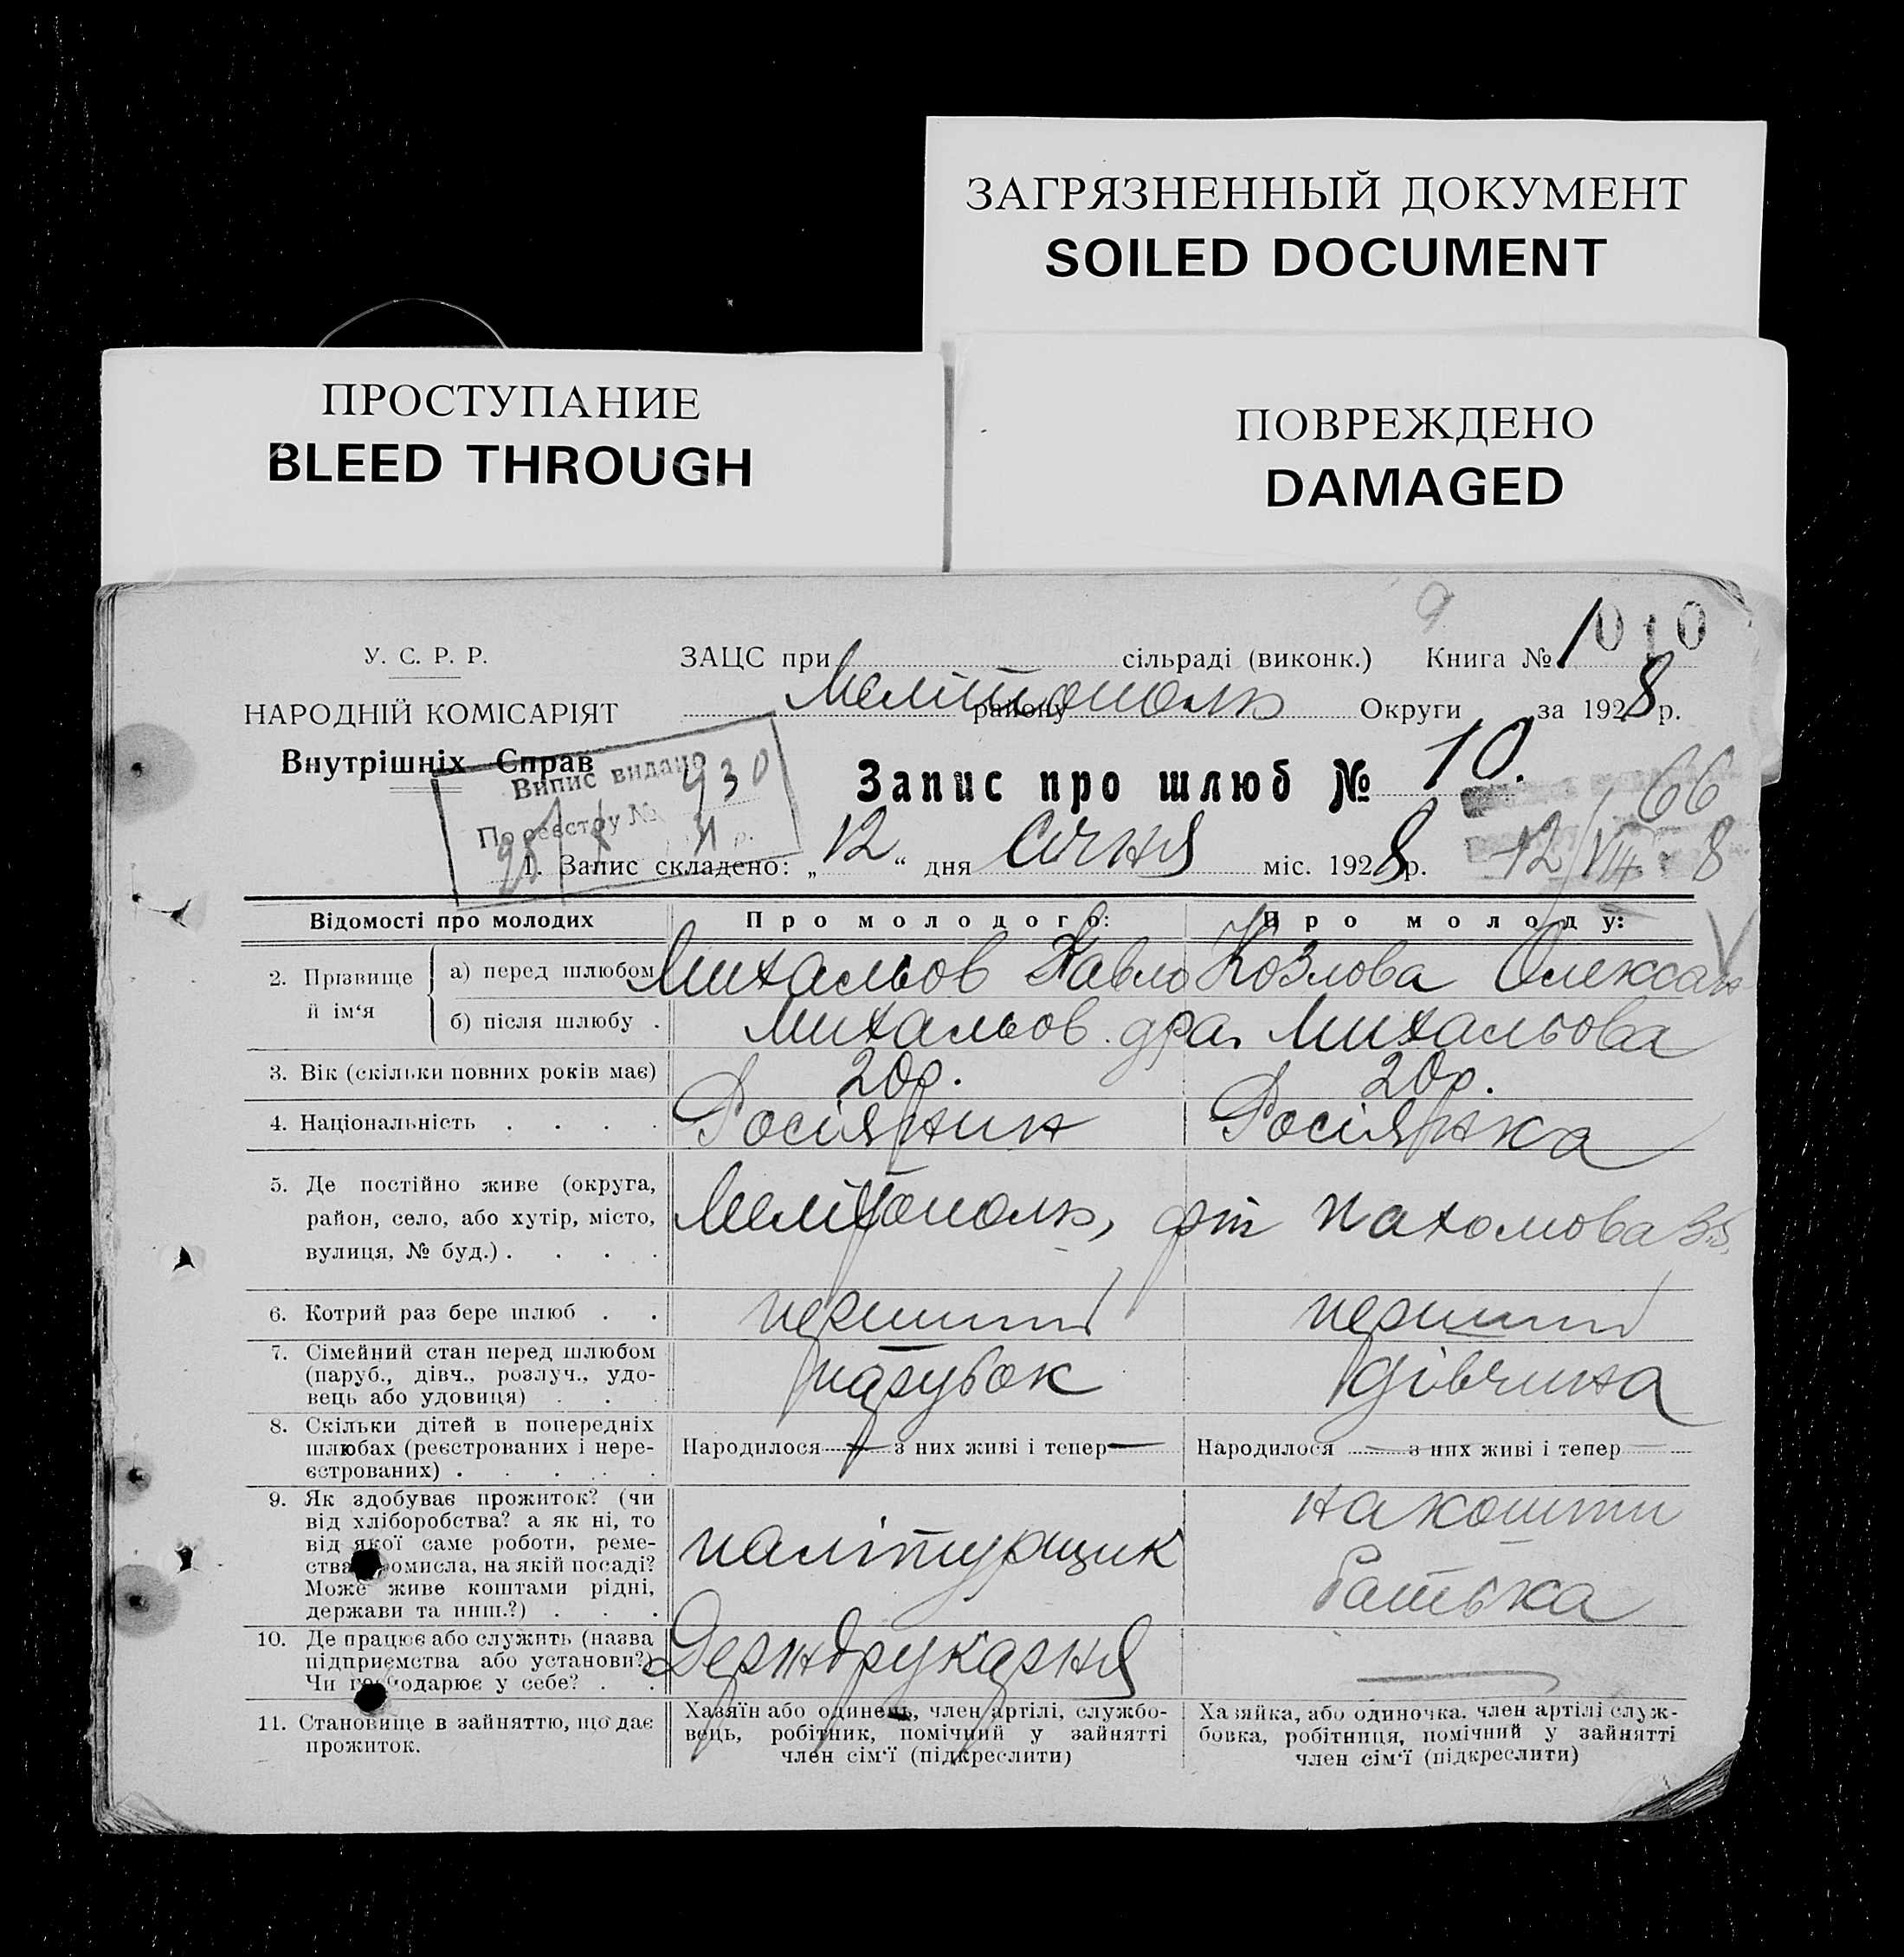 ЗАГРЯЗНЕННЫЙ ДОКУМЕНТ
SOILED DOCUMENT
ПРОСТУПАНИЕ
BLEED THROUGH
ПОВРЕЖДЕНО
DAMAGED
У. С. Р. Р.
НАРОДНІЙ КОМІСАРІЯТ
Внутрішніх Справ
ЗАЦС при сільраді (виконк.) Книга № 1
010
Мелітополь
району Округи за 1928 р.
Випис видано
930
По реєстру №
31 р.
Запис про шлюб № 10.
66
1. Запис складено: „12“ дня січня міс. 1928 р.
12/VIII 8
Відомості про молодих
Про молодого:
Про молоду:
2. Прізвище й ім‘я
а) перед шлюбом
Михальов Павло
Козлова Олексан
б) після шлюбу .
Михальов
дра. Михальова
3. Вік (скільки повних років має)
20 р.
20 р.
4. Національність . . . .
Росіянин
Росіянка
5. Де постійно живе (округа,
район, село, або хутір, місто,
вулиця, № буд.) . . . .
Мелітополь, Пахомова
6. Котрий раз бере шлюб . .
перший
перший
7. Сімейний стан перед шлюбом
(паруб., дівч., розлуч., удо-
вець або удовиця) . . .
парубок
дівчина
8. Скільки дітей в попередніх
шлюбах (реєстрованих і нере-
єстрованих) . . . . .
Народилося — з них живі і тепер —
Народилося — з них живі і тепер —
9. Як здобуває прожиток? (чи
від хліборобства? а як ні, то
від якої саме роботи, реме-
ства, промисла, на якій посаді?
Може живе коштами рідні,
держави та инш.?) . . .
палітурщик
на кошти
батька
10. Де працює або служить (назва
підприємства або установи?)
Чи господарює у себе? . .
Держдрукарня
—
11. Становище в зайняттю, що дає
прожиток.
Хазяїн або одинець, член артілі, службо-
вець, робітник, помічний у зайнятті
член сім‘ї (підкреслити)
Хазяйка, або одиночка, член артілі служ-
бовка, робітниця, помічний у зайнятті
член сім‘ї (підкреслити)